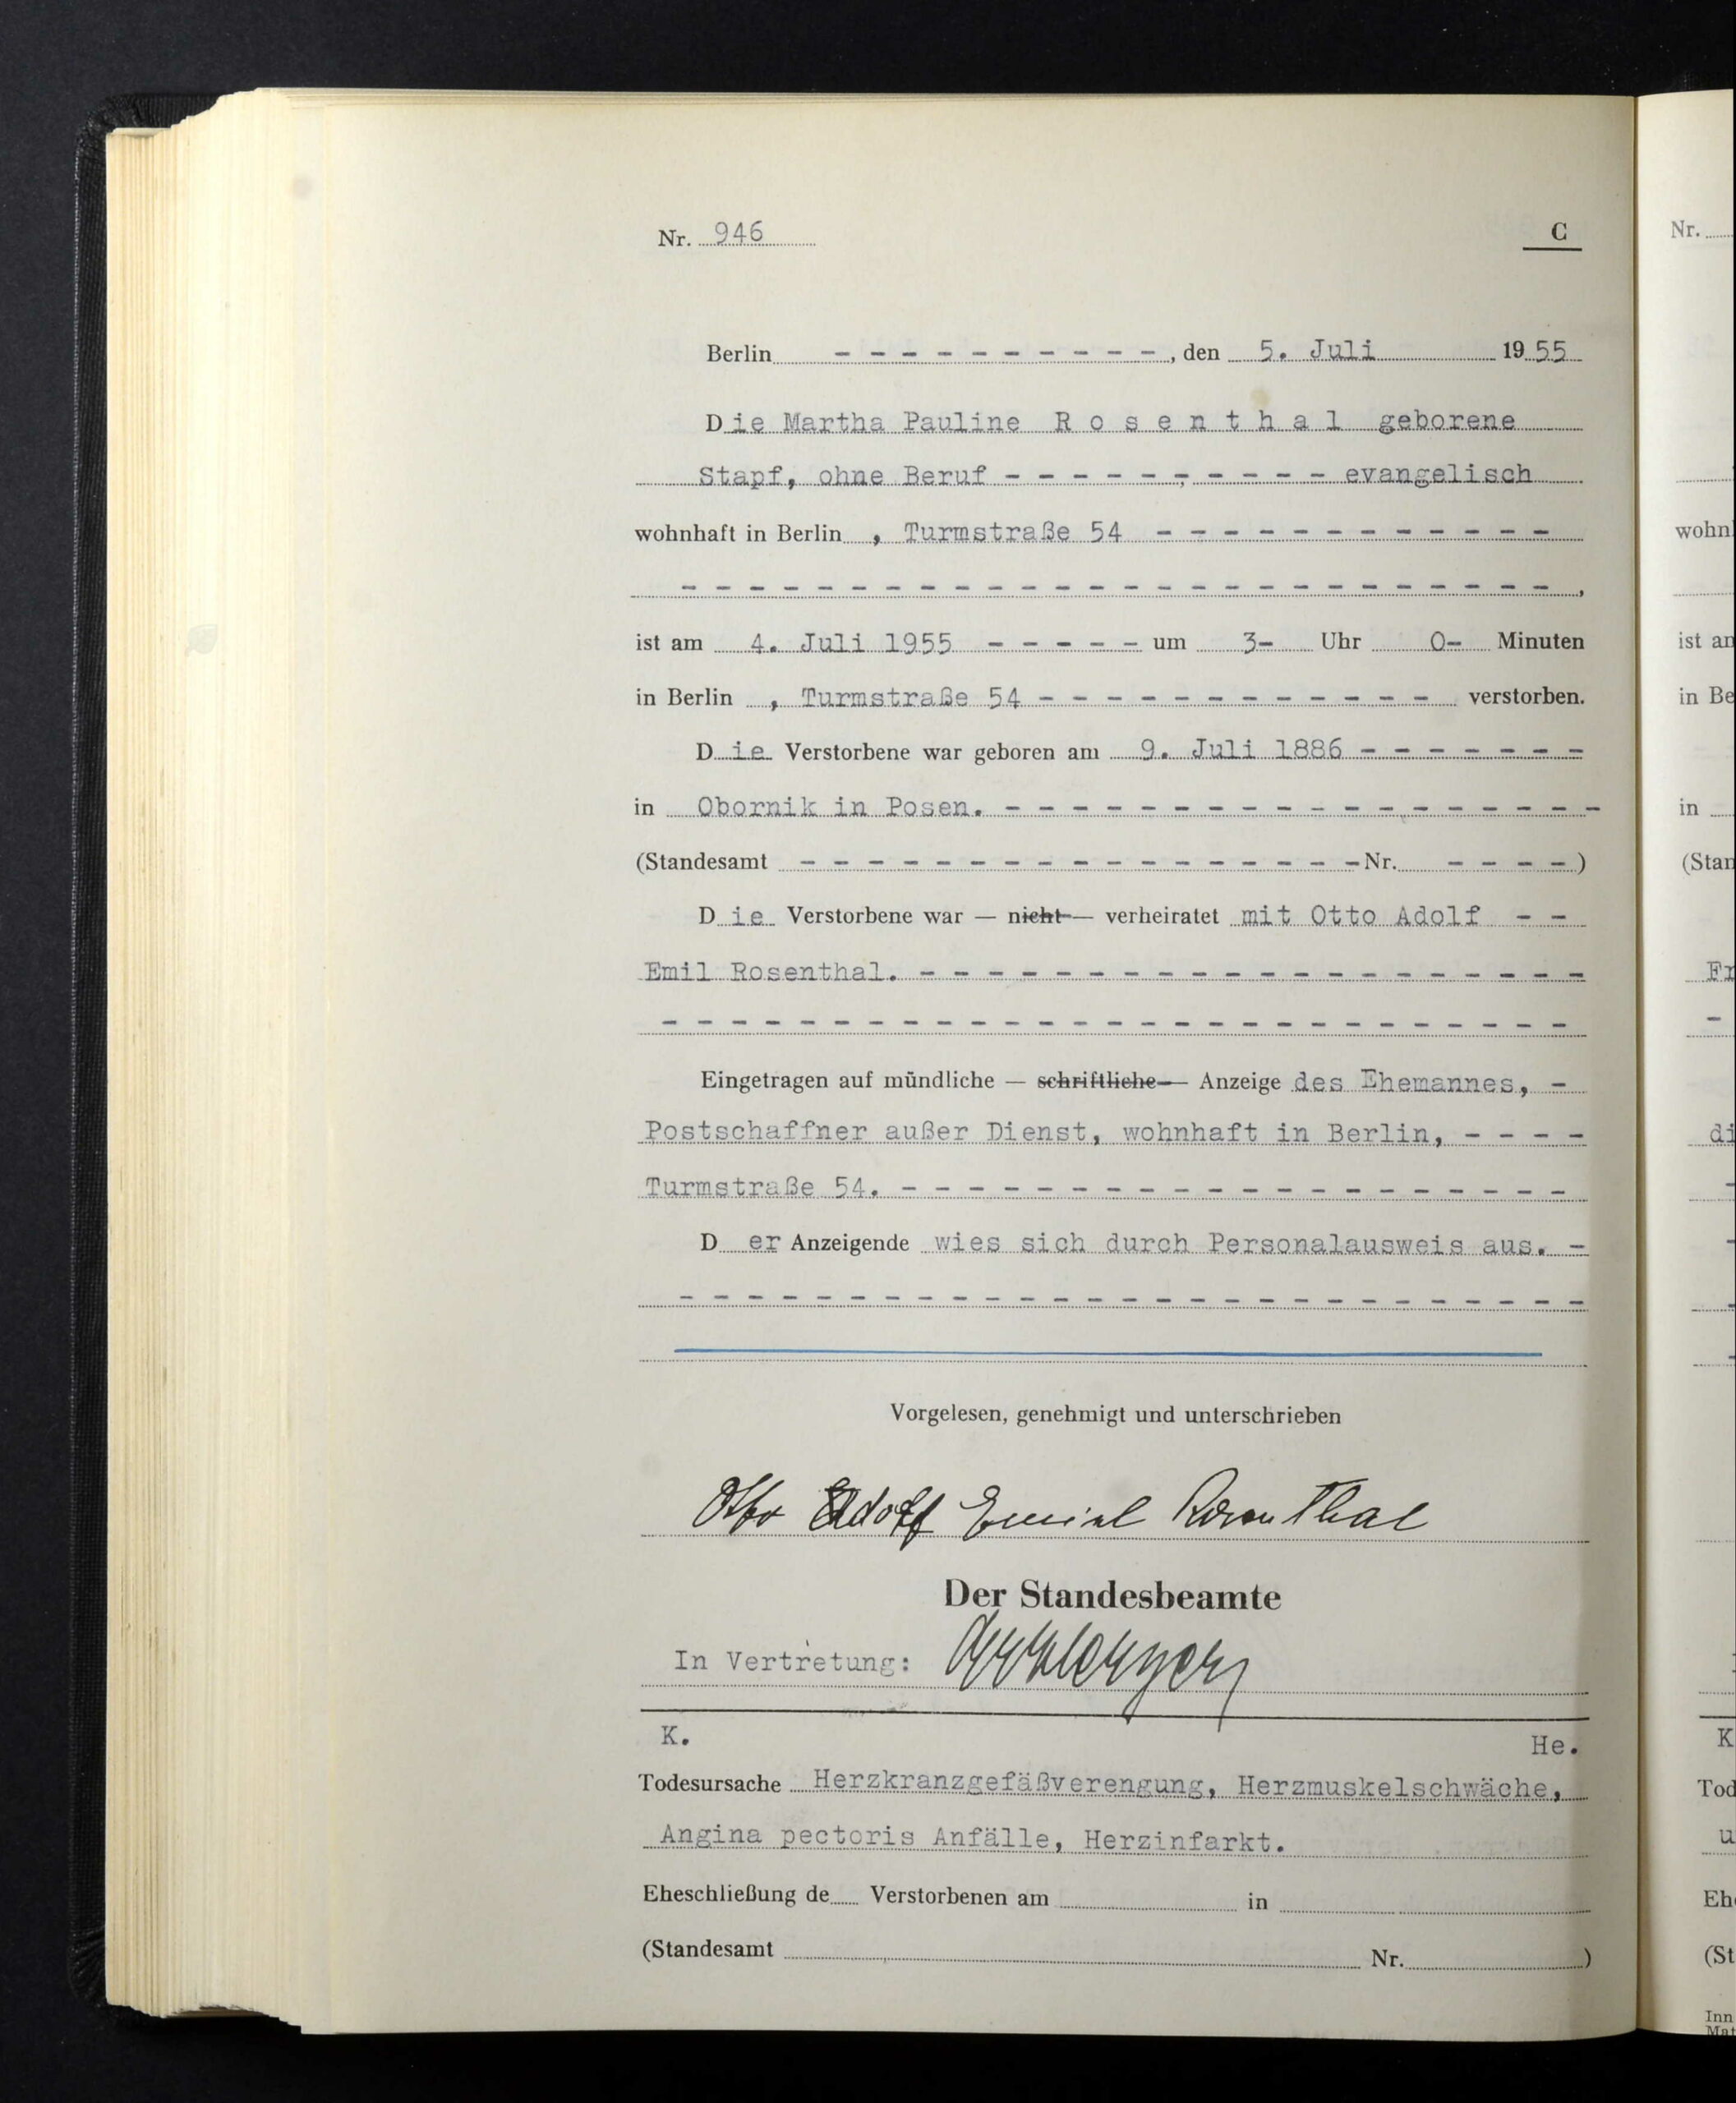 Nr. 946 C
Berlin - - - - - - - - - -, den 5. Juli 1955
Die Martha Pauline R o s e n t h a l geborene
Stapf, ohne Beruf - - - - - - - - - - evangelisch
wohnhaft in Berlin , Turmstraße 54 - - - - - - - - - - - -
- - - - - - - - - - - - - - - - - - - - - - - - - - ,
ist am 4. Juli 1955 - - - - - um 3- Uhr 0- Minuten
in Berlin , Turmstraße 54 - - - - - - - - - - - - verstorben.
Die Verstorbene war geboren am 9. Juli 1886 - - - - - - -
in Obornik in Posen. - - - - - - - - - - - - - - - - - -
(Standesamt - - - - - - - - - - - - - - - - - Nr. - - - -)
Die Verstorbene war — nicht — verheiratet mit Otto Adolf - -
Emil Rosenthal. - - - - - - - - - - - - - - - - - - - -
- - - - - - - - - - - - - - - - - - - - - - - - - - -
Eingetragen auf mündliche — schriftliche — Anzeige des Ehemannes, -
Postschaffner außer Dienst, wohnhaft in Berlin, - - - -
Turmstraße 54. - - - - - - - - - - - - - - - - - - - -
D er Anzeigende wies sich durch Personalausweis aus. -
- - - - - - - - - - - - - - - - - - - - - - - - - - -
Vorgelesen, genehmigt und unterschrieben
Otto Adolf Emil Rosenthal
Der Standesbeamte
In Vertretung:
K. He.
Todesursache Herzkranzgefäßverengung, Herzmuskelschwäche,
Angina pectoris Anfälle, Herzinfarkt.
Eheschließung de Verstorbenen am in
(Standesamt Nr. )
Nr.
wohn
ist an
in Be
in
(Stan
Fr
di
K
Tod
u
Eh
(St
Inn
Mat